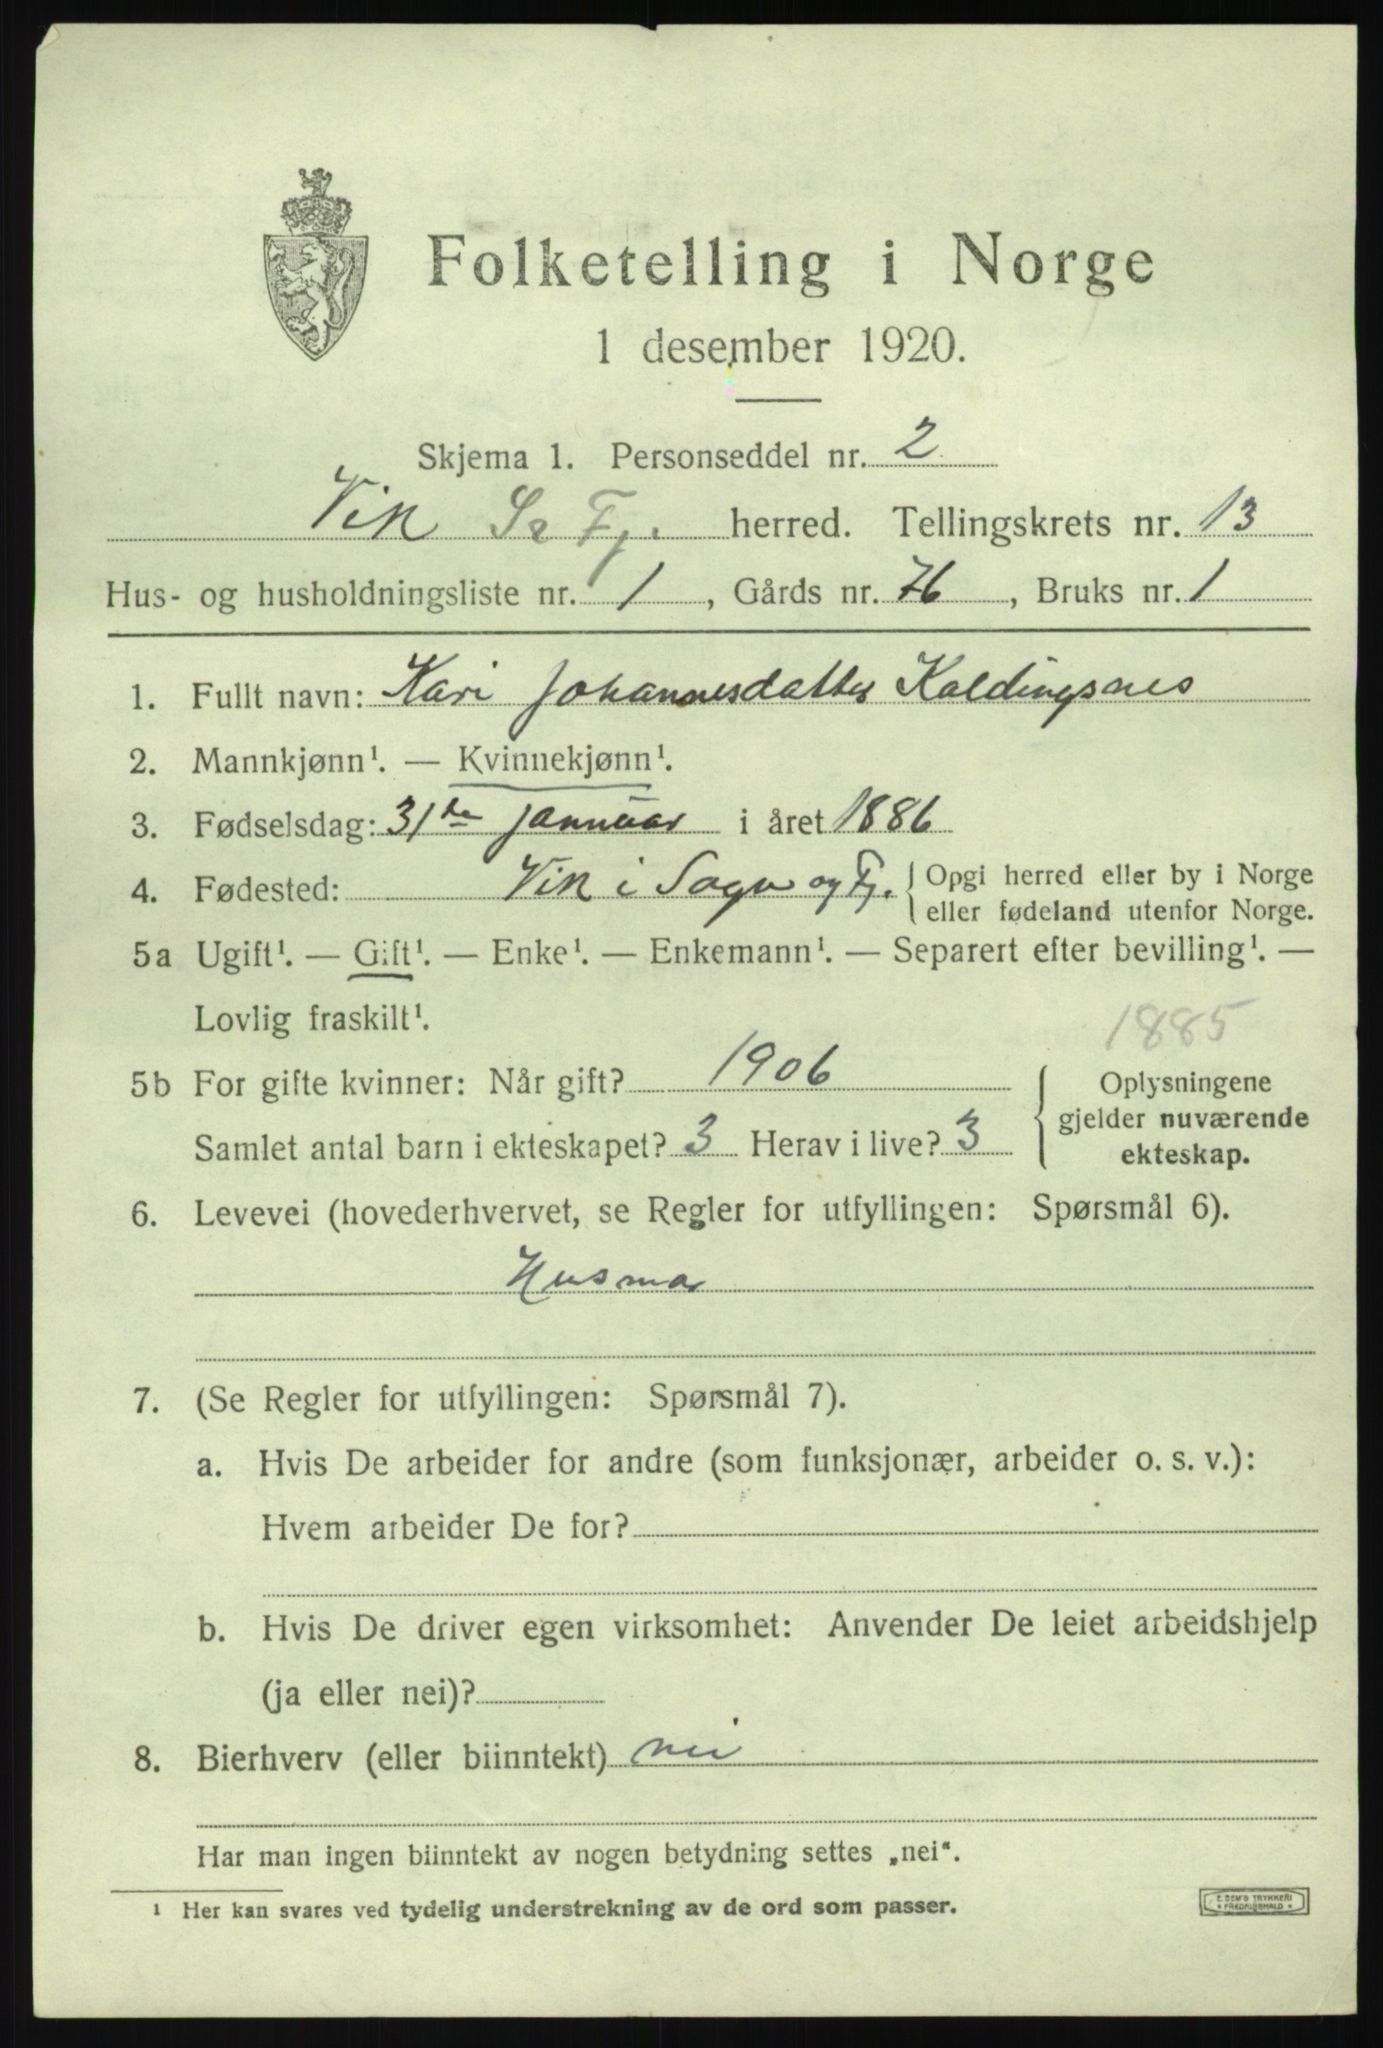 Folketelling i Norge
1 desember 1920.
Skjema 1. Personseddel nr. 2
Vik S. Fj. herred. Tellingskrets nr. 13
Hus- og husholdningsliste nr. 1, Gårds nr. 76, Bruks nr. 1
1. Fullt navn: Kari Johannesdatter Koldingsnes
2. Mannkjønn¹. — Kvinnekjønn¹.
3. Fødselsdag: 31te januar i året 1886
4. Fødested: Vik i Sogn og Fj. { Opgi herred eller by i Norge
eller fødeland utenfor Norge.
5a Ugift¹. — Gift¹. — Enke¹. — Enkemann¹. — Separert efter bevilling¹. —
Lovlig fraskilt¹.
1885
5b For gifte kvinner: Når gift? 1906
Samlet antal barn i ekteskapet? 3 Herav i live? 3
{ Oplysningene
gjelder nuværende
ekteskap.
6. Levevei (hovederhvervet, se Regler for utfyllingen: Spørsmål 6).
Husmor
7. (Se Regler for utfyllingen: Spørsmål 7).
a. Hvis De arbeider for andre (som funksjonær, arbeider o. s. v.):
Hvem arbeider De for?
b. Hvis De driver egen virksomhet: Anvender De leiet arbeidshjelp
(ja eller nei)?
8. Bierhverv (eller biinntekt) nei
Har man ingen biinntekt av nogen betydning settes „nei“.
¹ Her kan svares ved tydelig understrekning av de ord som passer.
E. SEM'S TRYKKERI
* FREDRIKSHALD *